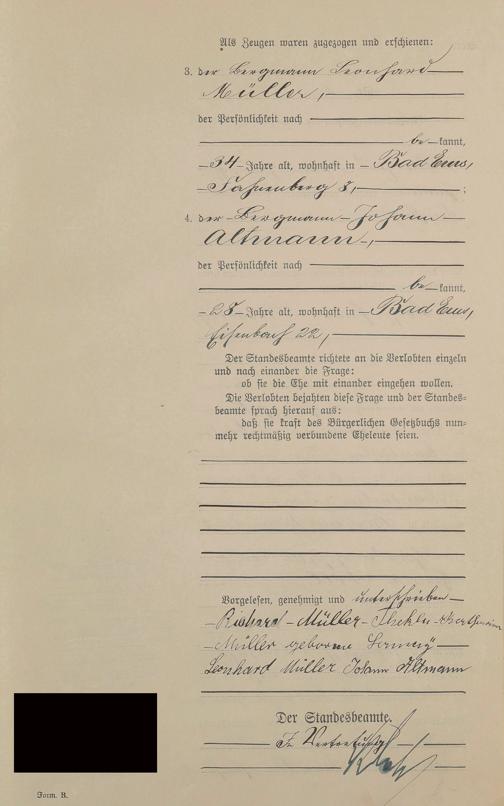 Als Zeugen waren zugezogen und erschienen:
3. der Bergmann Leonhard
Müller,
der Persönlichkeit nach
be kannt,
54 Jahre alt, wohnhaft in Bad Ems,
8, ;
4. der Bergmann Johann
Altmann,
der Persönlichkeit nach
be kannt,
28 Jahre alt, wohnhaft in Bad Ems,
Eisenbach 22,
Der Standesbeamte richtete an die Verlobten einzeln
und nach einander die Frage:
ob sie die Ehe mit einander eingehen wollen.
Die Verlobten bejahten diese Frage und der Standes-
beamte sprach hierauf aus:
daß sie kraft des Bürgerlichen Gesetzbuchs nun-
mehr rechtmäßig verbundene Eheleute seien.
Vorgelesen, genehmigt und unterschrieben
Richard Müller Thekla
Müller geborene
Leonhard Müller Johann Altmann
Der Standesbeamte.
In Vertretung
Form. B.